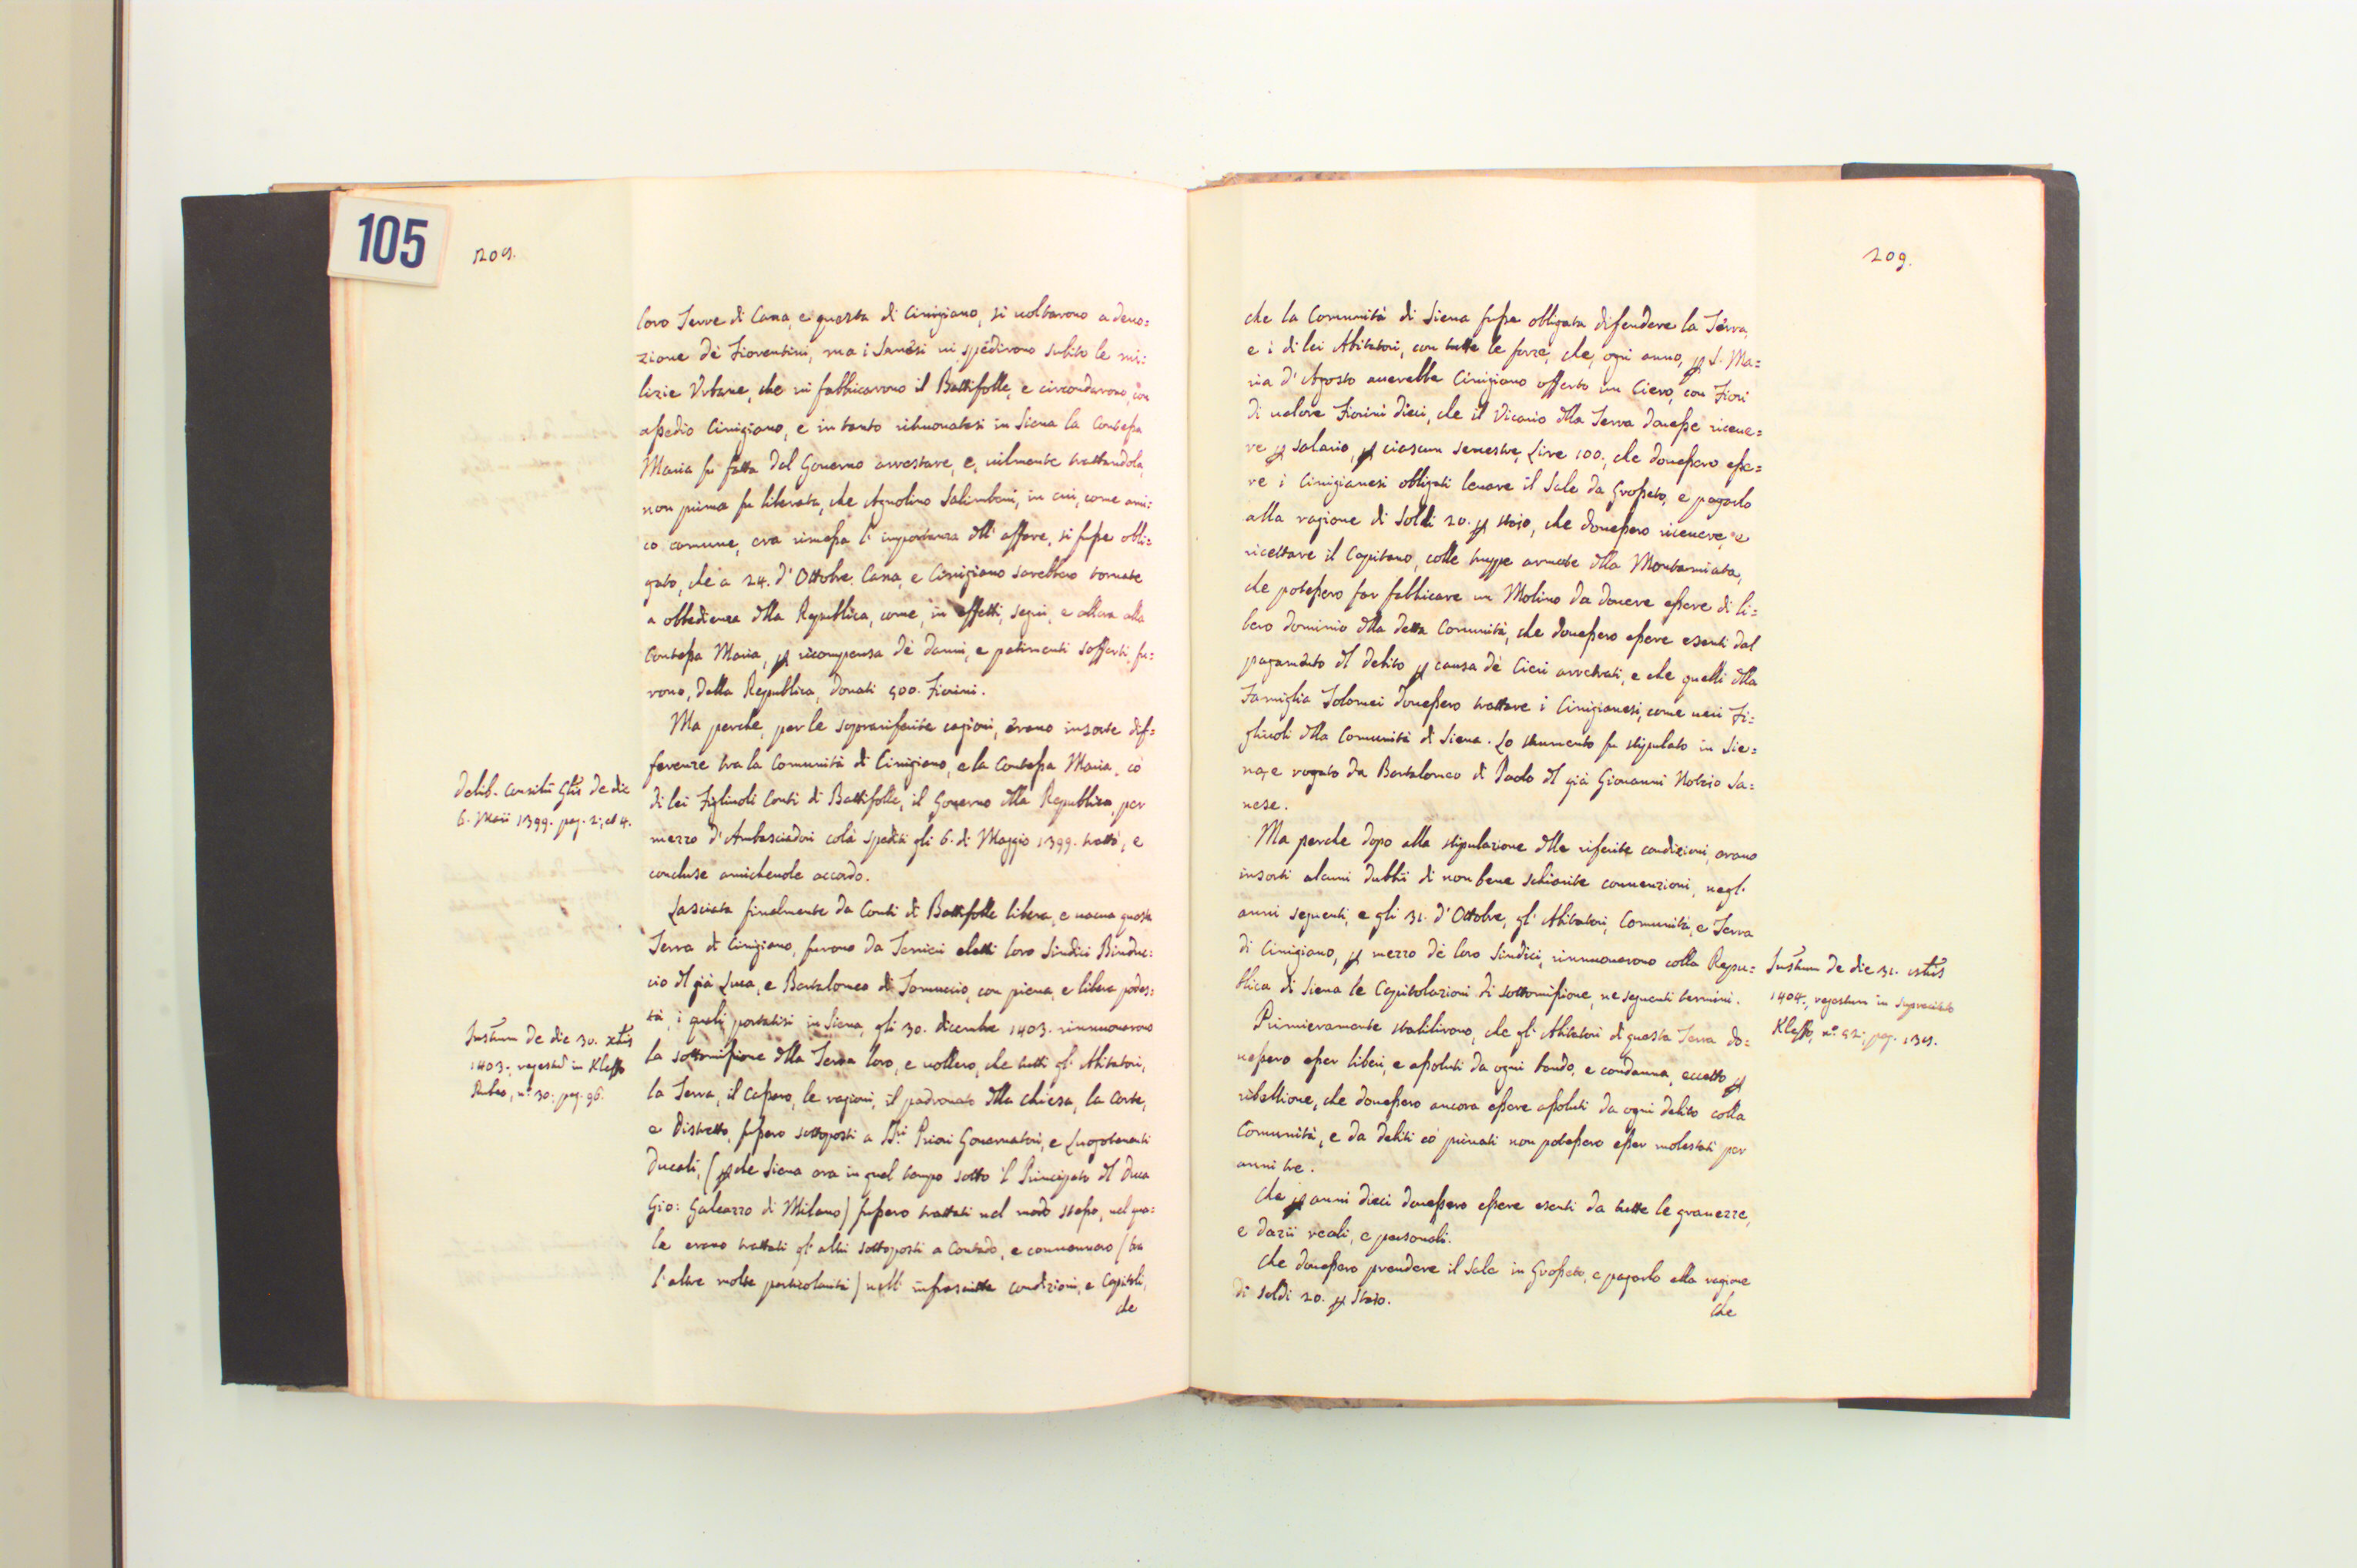 105
209.
loro Terre di Cana, e questa di Cinigiano, si uoltarono a deuo=
zione de' Fiorentini, ma i Sanesi ui spedirono subito le mi=
lizie Urbane, che ui fabbricarono il Battifolle, e circondarono, con
assedio Cinigiano, e in tanto ritrouatasi in Siena la Contessa
Maria fu fatta dal Gouerno arrestare, e, uilmente trattandola,
non prima fu liberata, che Agnolino Salimbeni, in cui, come ami=
co comune, era rimessa l' importanza dell' affare, si fusse obli=
gato, che a 24. d' Ottobre, Cana, e Cinigiano sarebbero tornate
a obbedienza della Republica, come, in effetti, seguì, e allora alla
Contessa Maria, p ricompensa de' danni, e patimenti sofferti, fu=
rono, dalla Republica, donati 500. Fiorini.
Ma perche, per le sopariferite cagioni, erano insorte dif=
ferenze tra la Comunità di Cinigiano, e la Contessa Maria, co'
di lei Figliuoli Conti di Battifolle, il Gouerno della Republica, per
mezzo d' Ambasciadori colà spediti gli 6. di Maggio 1399. trattò, e
concluse amicheuole accordo.
Delib. Consilii Glis de die
6. Maii 1399. pag. 2., et 4.
Lasciata finalmente da Conti di Battifolle libera, e uacua questa
Terra di Cinigiano, furono da Terrieri eletti loro Sindici Binduc=
cio del già Luca, e Bartalomeo di Tomuccio, con piena, e libera podes=
tà, i quali portatisi in Siena, gli 30. dicembre 1403. rinnuouorono
la sottomissione della Terra loro, e uollero, che tutti gl' Abitatori,
la Terra, il Cassero, le ragioni, il padronato della chiesa, la Corte,
e Distretto, fussero sottoposti a SS.ri Priori Gouernatori, e Luogotenenti
Ducali, (pche Siena era in quel tempo sotto 'l Principato del Duca
Gio: Galeazzo di Milano) fussero trattati nel modo stesso, nel qua=
le erano trattati gl' altri sottoposti a Contado, e conuennero (tra
l' altre molte particolarità) nell' infrascritte condizioni, e Capitoli,
che
Instrum de die 30. xbris
1403., regestũ in Kleffo
Rubeo, n° 30. pag. 96.
209.
che la Comunità di Siena fusse obligata difendere la Terra,
e i di lei Abitatori, con tutte le forze, che, ogni anno, p S. Ma=
ria d' Agosto auerebbe Cinigiano offerto un Ciero, con Fiori
di ualore Fiorini dieci, che il Vicario della Terra douesse riceue=
re p salario, p ciascun semestre, Lire 100., che douessero esse=
re i Cinigianesi obligati leuare il Sale da Grosseto, e pagarlo
alla ragione di Soldi 20. p staio, che douessero riceuere, e
ricettare il Capitano, colle truppe armate della Montamiata,
che potessero far fabbricare un Molino da douere essere di li=
bero dominio della detta Comunità, che douessero essere esenti dal
pagamento del debito p causa de' Cieri arretrati, e che quelli della
Famiglia Tolomei douessero trattare i Cinigianesi, come ueri Fi=
gliuoli della Comunità di Siena. Lo strumento fu stipulato in Sie=
na, e rogato da Bartalomeo di Paolo del già Giouanni Notaio Sa=
nese.
Ma perche dopo alla stipulazione delle riferite condizioni, erano
insorti alcuni dubbii di non bene schiarite conuenzioni, negl'
anni seguenti, e gli 31. d' Ottobre, gl' Abitatori, Comunità, e Terra
di Cinigiano, p mezzo de' loro Sindici, rinnuouorono colla Repu=
blica di Siena le Capitolazioni di sottomissione, ne seguenti termini.
Instrum de die 31. 8bris
1404., regestum in supracitato
Kleffo, n° 52., pag. 139.
Primieramente stabilirono, che gl' Abitatori di questa Terra do=
uessero esser liberi, e assoluti da ogni bando, e condanna, eccetto p
ribellione, che douessero ancora essere assoluti da ogni debito colla
Comunità, e da debiti co' priuati non potessero esser molestati per
anni tre.
Che p anni dieci douessero essere esenti da tutte le grauezze,
e dazii reali, e personali.
Che douessero prendere il Sale in Grosseto, e pagarlo alla ragione
di soldi 20. p Staio.
che